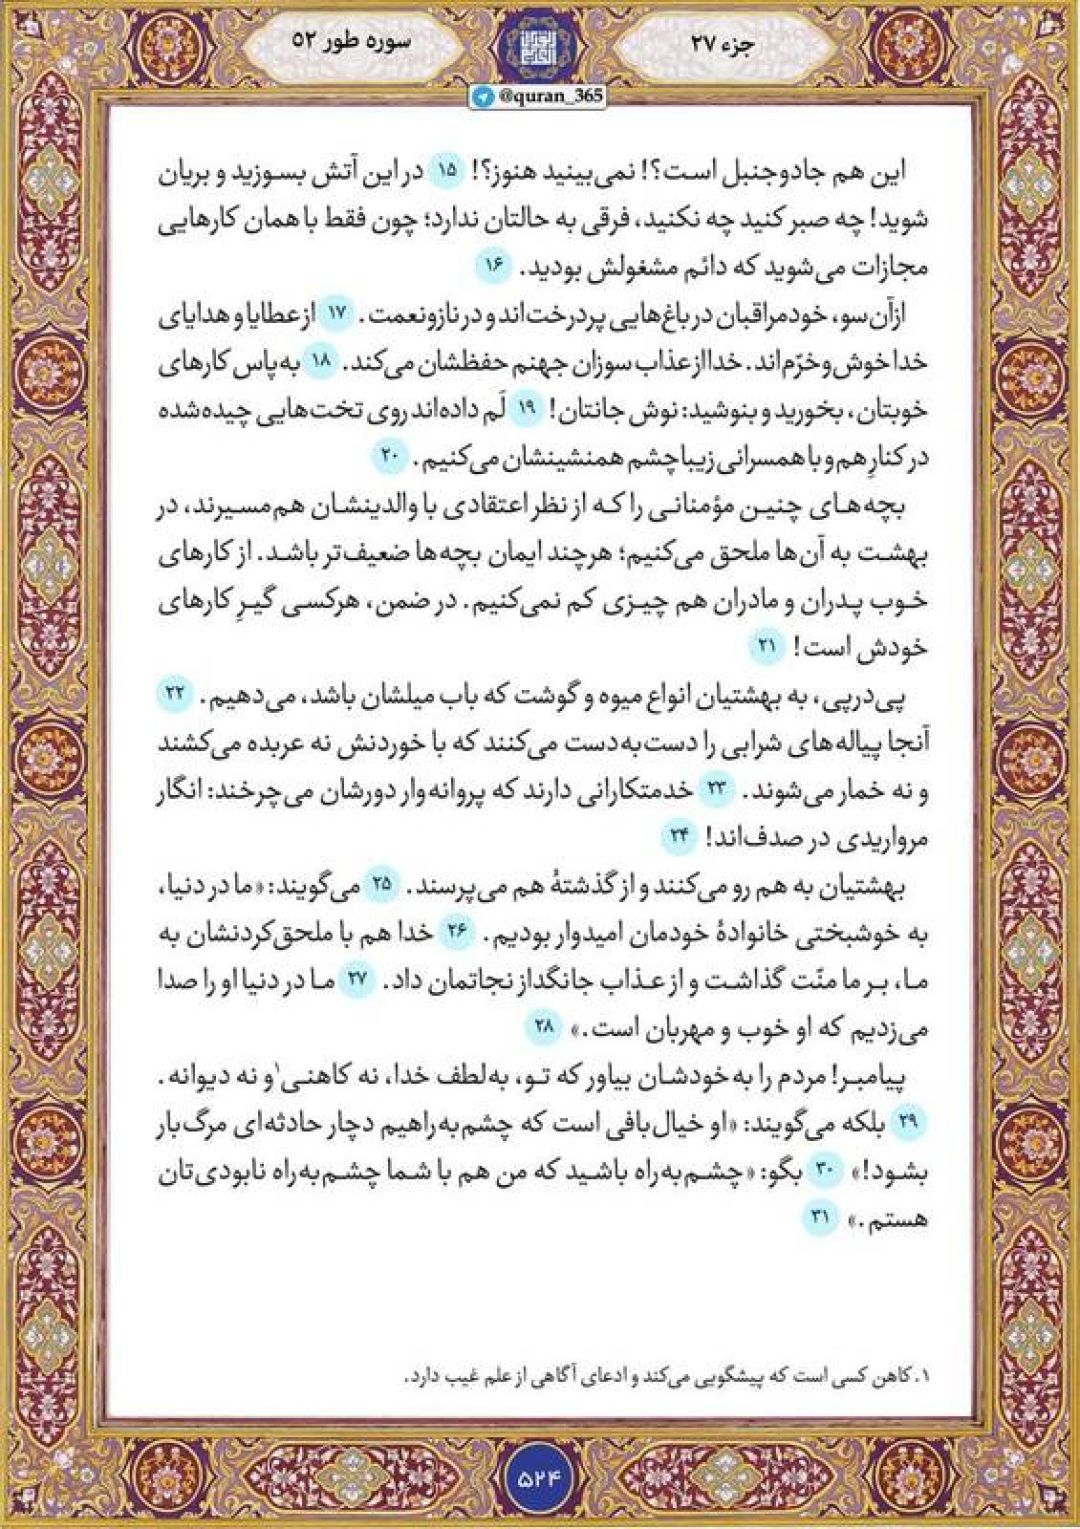 جزء ۲۷
سوره طور ۵۲
@quran_365
این هم جادوجنبل است؟! نمی‌بینید هنوز؟! ۱۵ در این آتش بسوزید و بریان
شوید! چه صبر کنید چه نکنید، فرقی به حالتان ندارد؛ چون فقط با همان کارهایی
مجازات می‌شوید که دائم مشغولش بودید. ۱۶
ازآن‌سو، خودمراقبان در باغ‌هایی پردرخت‌اند و در نازونعمت. ۱۷ از عطایا و هدایای
خدا خوش‌و‌خرّم‌اند. خدا از عذاب سوزان جهنم حفظشان می‌کند. ۱۸ به‌پاس کارهای
خوبتان، بخورید و بنوشید: نوش جانتان! ۱۹ لَم داده‌اند روی تخت‌هایی چیده‌شده
در کنارِ هم و با همسرانی زیباچشم همنشینشان می‌کنیم. ۲۰
بچه‌های چنین مؤمنانی را که از نظر اعتقادی با والدینشان هم‌مسیرند، در
بهشت به آن‌ها ملحق می‌کنیم؛ هرچند ایمان بچه‌ها ضعیف‌تر باشد. از کارهای
خوب پدران و مادران هم چیزی کم نمی‌کنیم. در ضمن، هرکسی گیرِ کارهای
خودش است! ۲۱
پی‌درپی، به بهشتیان انواع میوه و گوشت که باب میلشان باشد، می‌دهیم. ۲۲
آنجا پیاله‌های شرابی را دست‌به‌دست می‌کنند که با خوردنش نه عربده می‌کشند
و نه خمار می‌شوند. ۲۳ خدمتکارانی دارند که پروانه‌وار دورشان می‌چرخند: انگار
مرواریدی در صدف‌اند! ۲۴
بهشتیان به هم رو می‌کنند و از گذشتهٔ هم می‌پرسند. ۲۵ می‌گویند: «ما در دنیا،
به خوشبختی خانوادهٔ خودمان امیدوار بودیم. ۲۶ خدا هم با ملحق‌کردنشان به
ما، بر ما منّت گذاشت و از عذاب جانگداز نجاتمان داد. ۲۷ ما در دنیا او را صدا
می‌زدیم که او خوب و مهربان است.» ۲۸
پیامبر! مردم را به‌خودشان بیاور که تو، به‌لطف خدا، نه کاهنی۱ و نه دیوانه.
۲۹ بلکه می‌گویند: «او خیال‌بافی است که چشم‌به‌راهیم دچار حادثه‌ای مرگ‌بار
بشود!» ۳۰ بگو: «چشم‌به‌راه باشید که من هم با شما چشم‌به‌راه نابودی‌تان
هستم.» ۳۱
۱. کاهن کسی است که پیشگویی می‌کند و ادعای آگاهی از علم غیب دارد.
۵۲۴